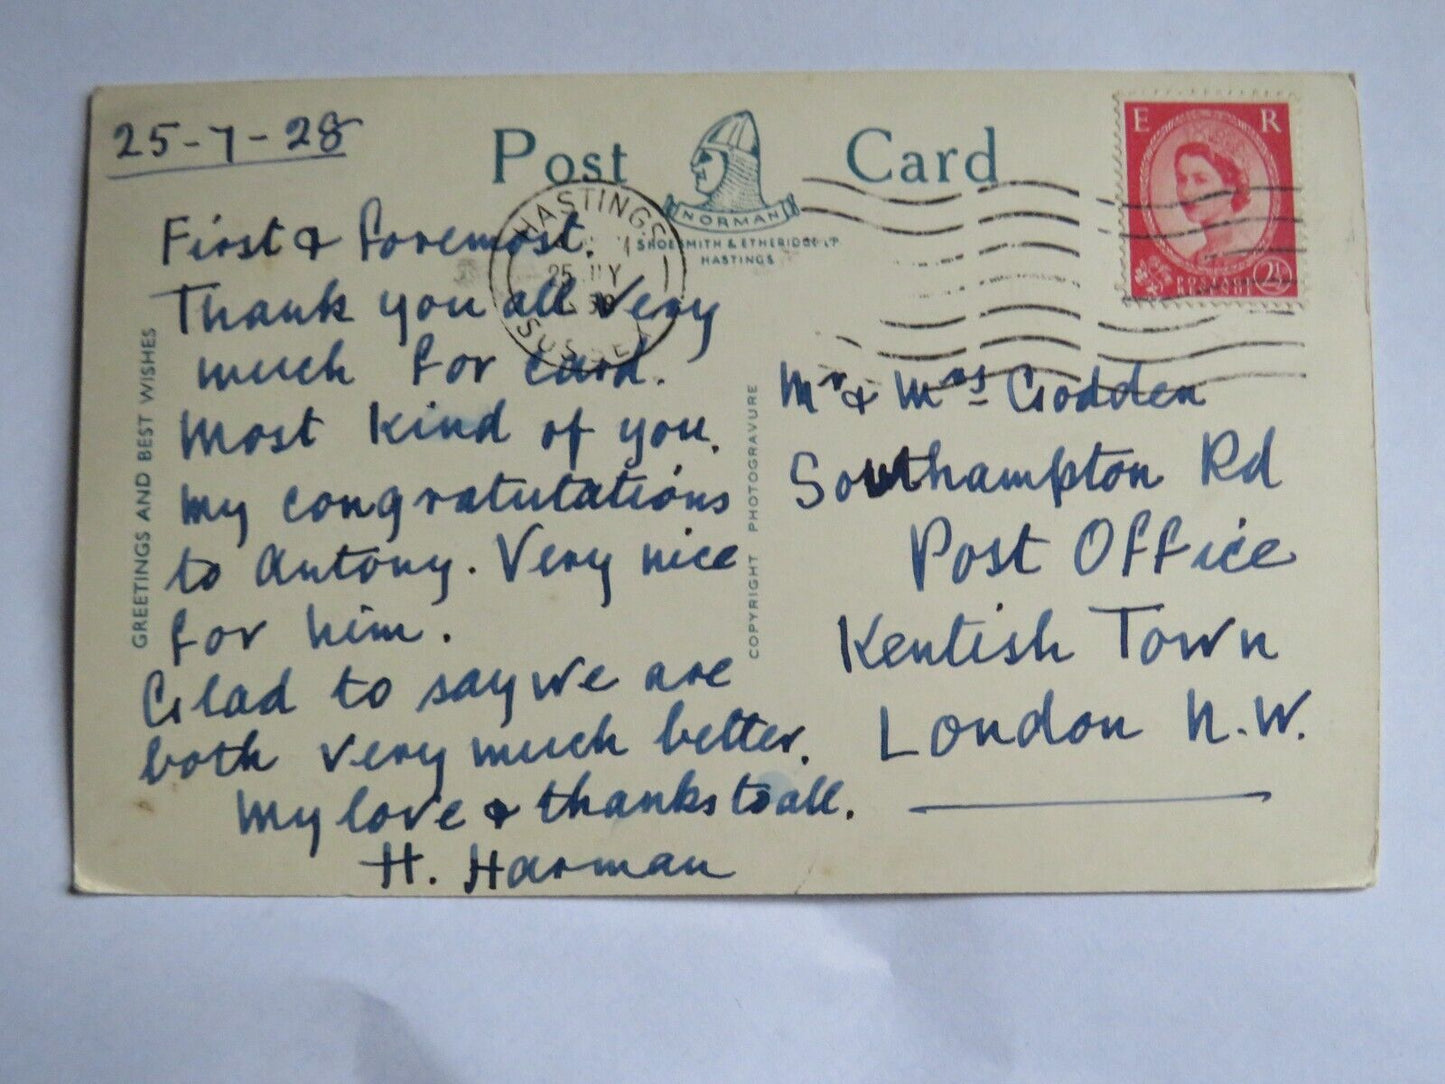 25-7-28
Post Card
NORMAN
SHOESMITH & ETHERIDGE LTD
HASTINGS
HASTINGS
25 JLY
SUSSEX
E R
2½
GREETINGS AND BEST WISHES
First & foremost.
Thank you all very
much for card.
Most kind of you.
My congratutations
to Antony. Very nice
for him.
Glad to say we are
both very much better.
My love & thanks to all.
H. Harman
COPYRIGHT PHOTOGRAVURE
Mr & Mrs Godden
Southampton Rd
Post Office
Kentish Town
London N.W.